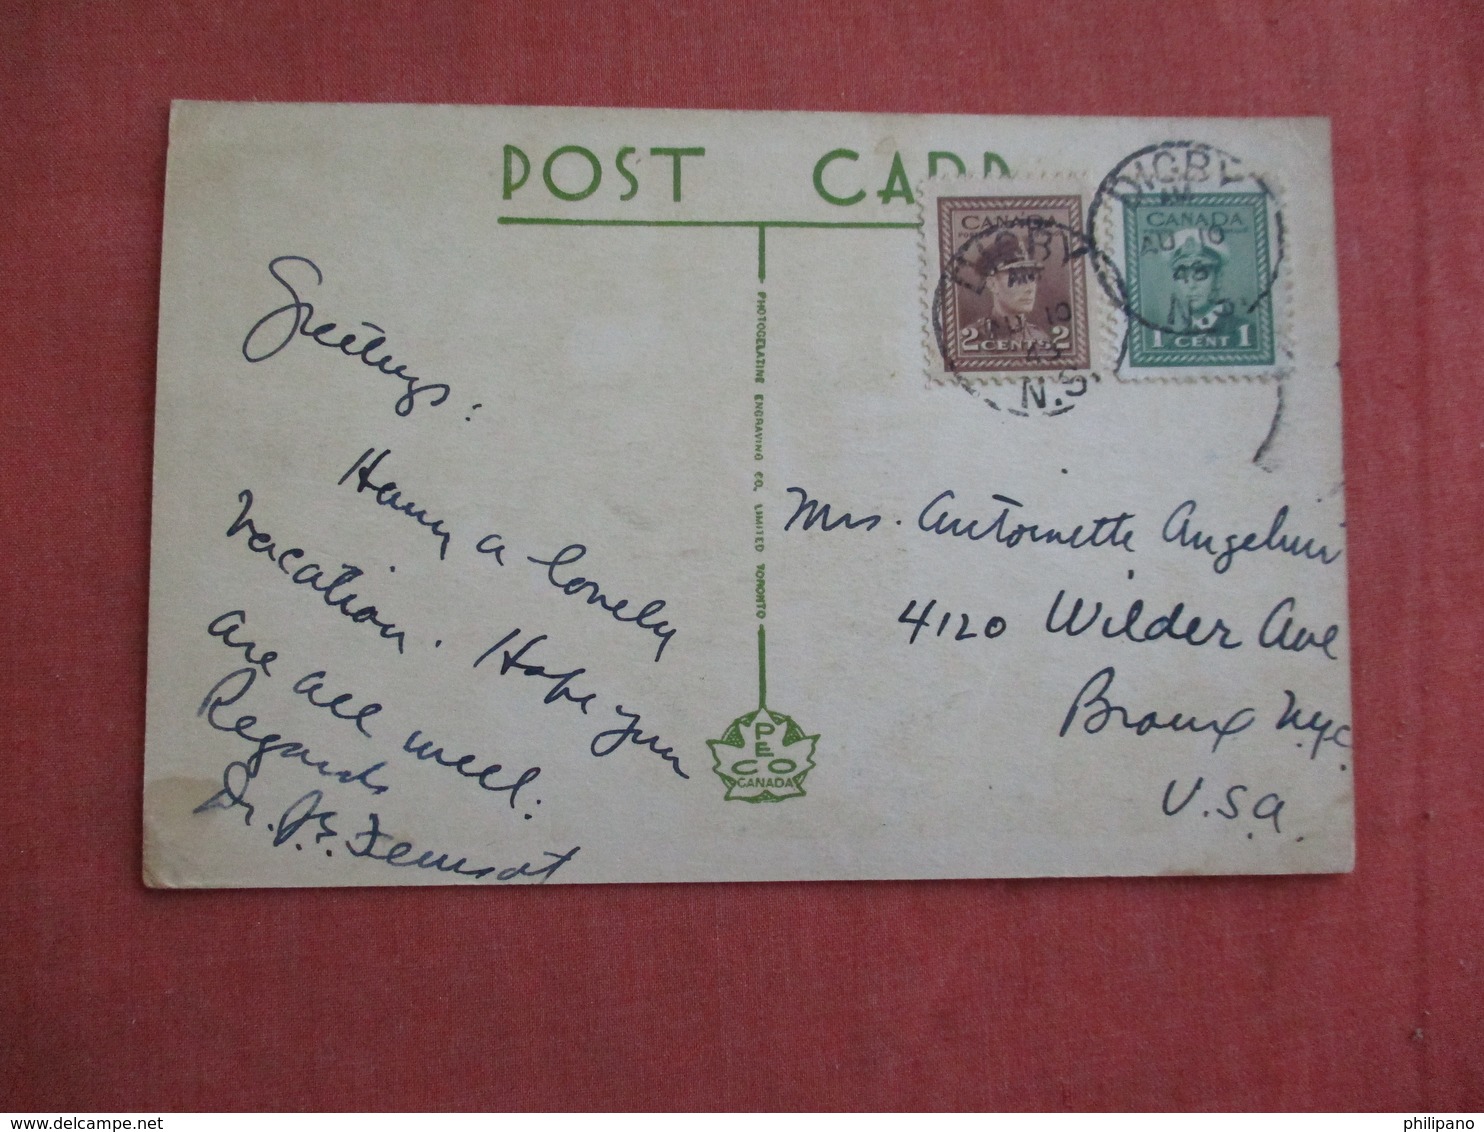 POST CARD
CANADA
2 CENTS 2
DIGBY
AM
AU 10
N.S.
CANADA
1 CENT 1
DIGBY
AM
AU 10
48
N.S.
PHOTOGELATINE ENGRAVING CO. LIMITED TORONTO
PECO
CANADA
Greetings:
Having a lovely
vacation. Hope you
are all well.
Regards
Dr.
Mrs. Antoinette Angelini
4120 Wilder Ave
Bronx NYC
U.S.A.
philipano